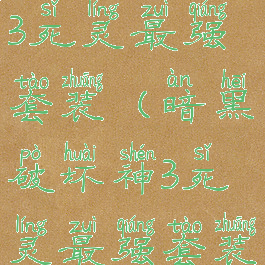 sǐ líng zuì qiáng
3死灵最强
tào zhuāng àn hēi
套装（暗黑
pò huài shén sǐ
破坏神3死
líng zuì qiáng tào zhuāng
灵最强套装